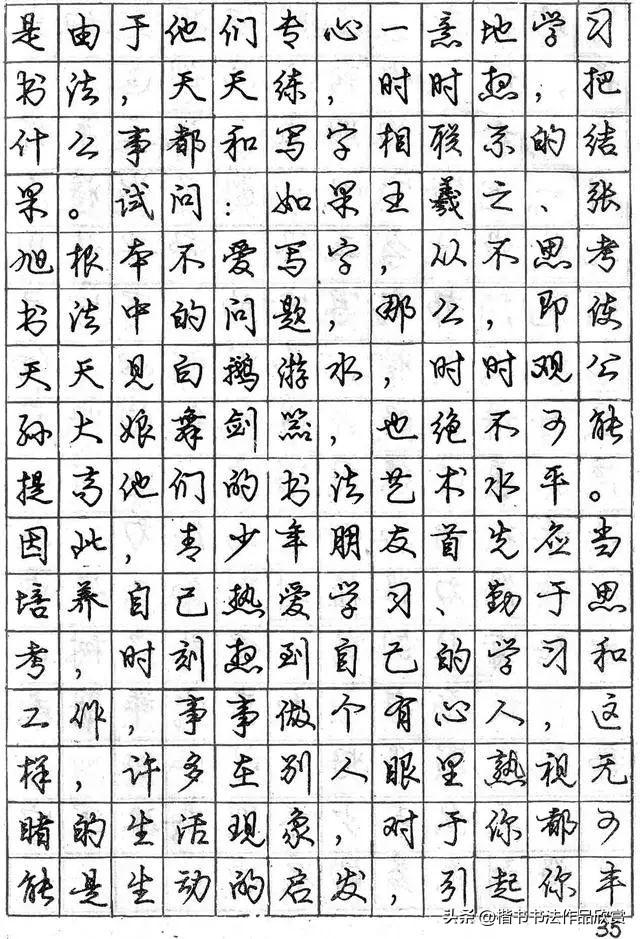 是由于他们专心一意地学习
书法，天天练，时时想，把
什么事都和写字相联系的结
果。试问：如果王羲之、张
旭根本不爱写字，从不思考
书法中的问题，那么，即使
天天见白鹅游水，时时观公
孙大娘舞剑器，也绝不可能
提高他们的书法艺术水平。
因此，青少年朋友首先应当
培养自己热爱学习、勤于思
考，时刻想到自己的学习和
工作，事事做个有心人，这
样，许多在别人眼里熟视无
睹的生活现象，对于你都可
能是生动的启发，引起你丰
头条@楷书书法作品欣赏
35